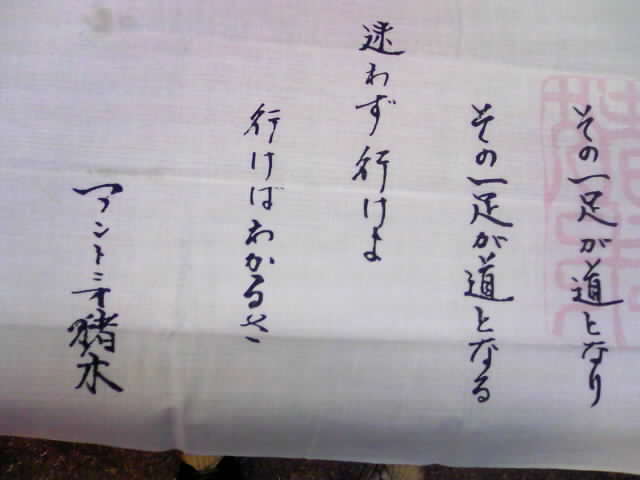 その一足が道となり
その一足が道となる
迷わず行けよ
行けばわかるさ
アントニオ猪木